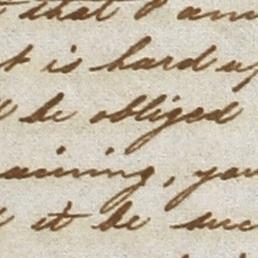 that I am
it is hard up
be obliged
aining, you
it be suc